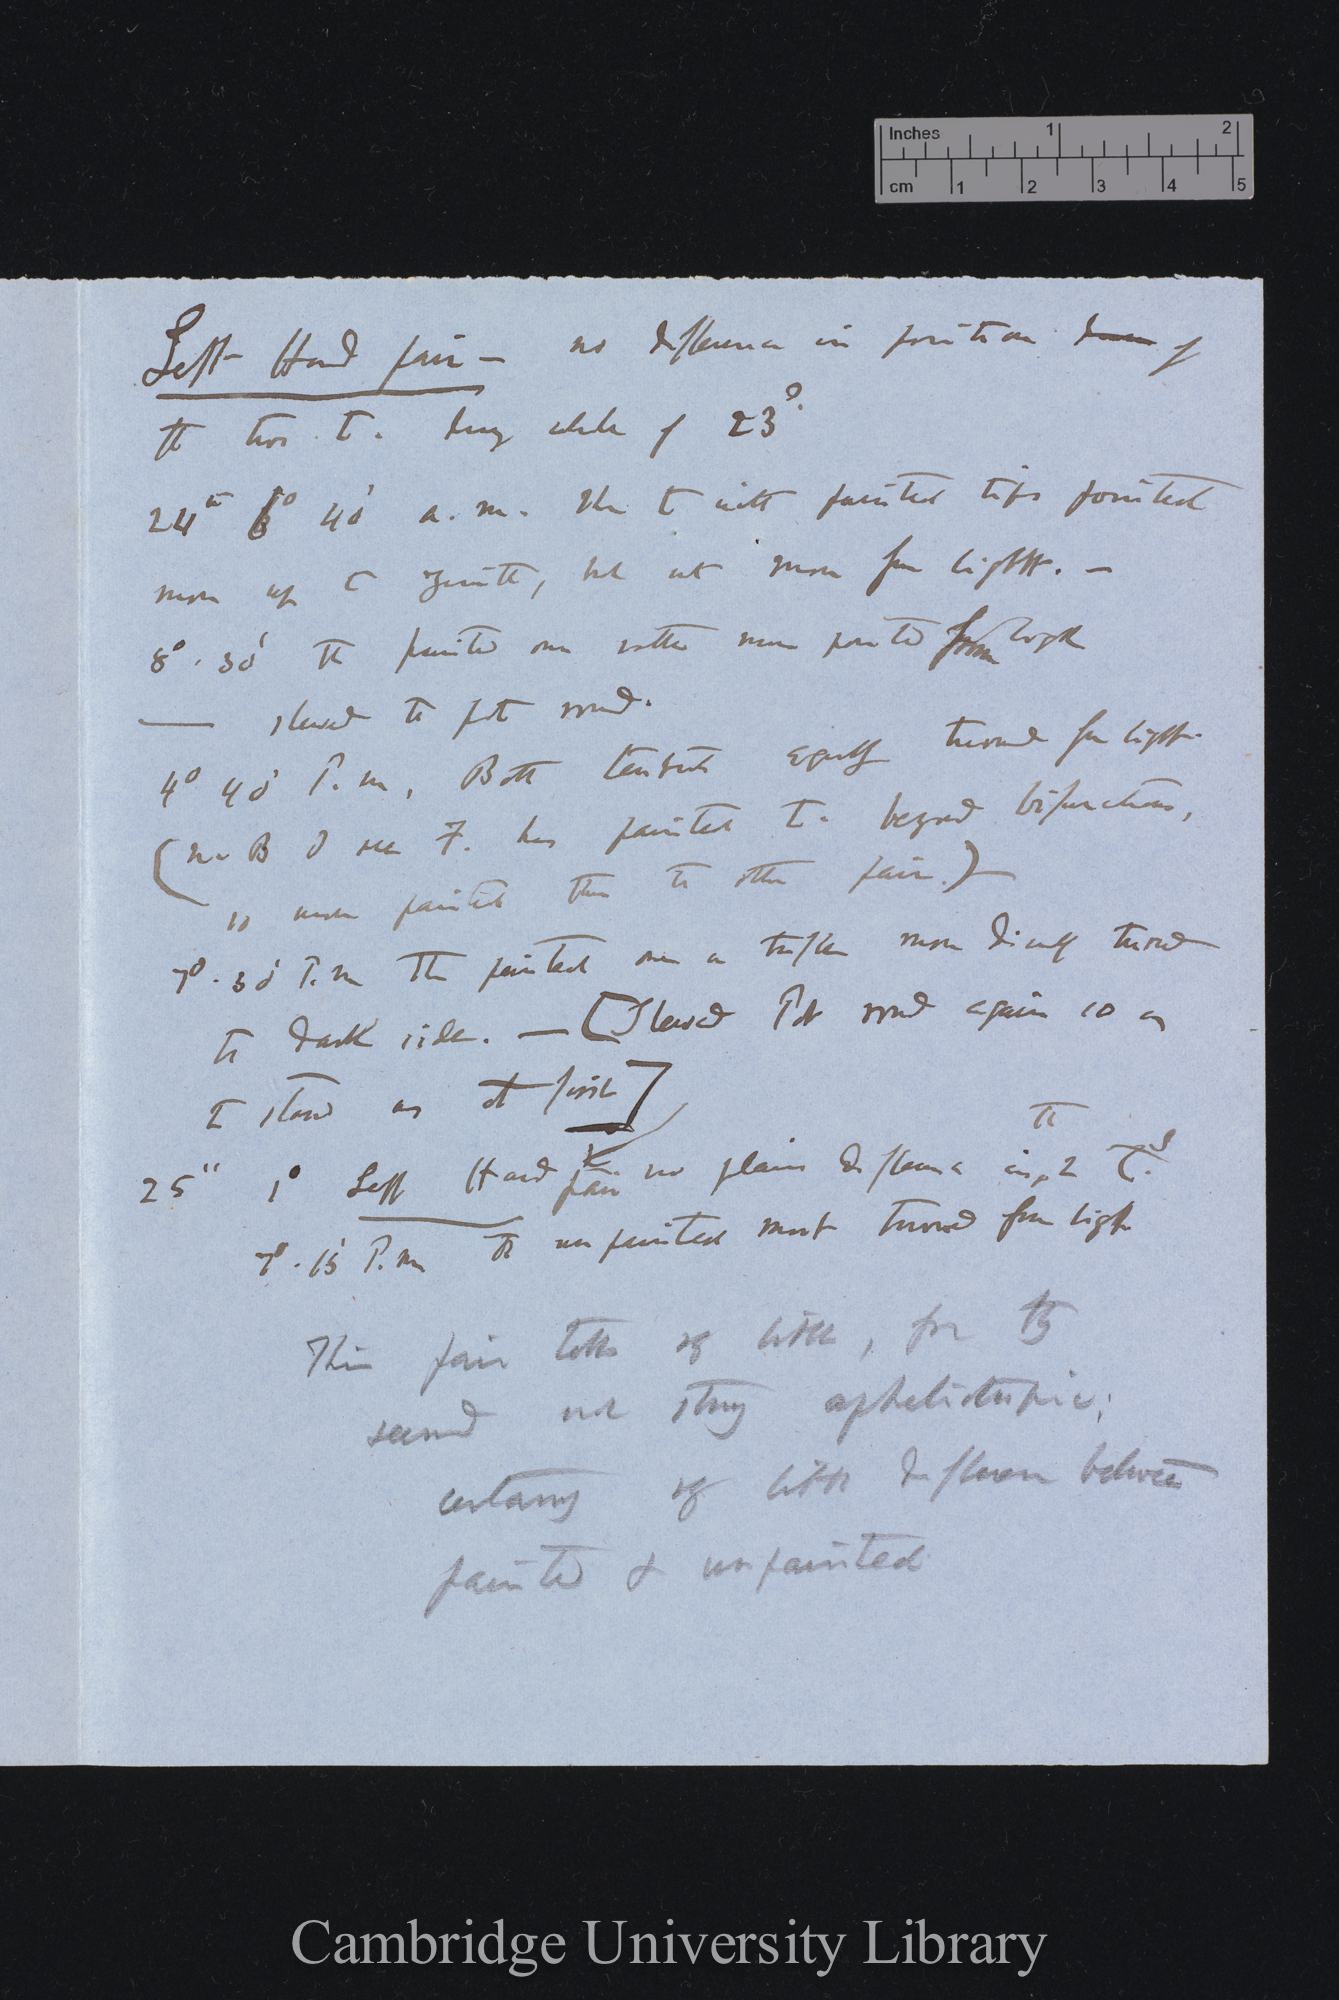 Inches 1 2
cm 1 2 3 4 5
Left Hand pair — no difference in position of
the two T. during whole of 23°.
24th 6° 40' a.m. The T with painted tips pointed
more up to Zenith, but not more from light. —
8°. 30' The painted one rather more pointed from light
— slewed the pot round.
4° 40' P.m, Both tendrils equally turned from light.
(N.B I see F. has painted T. beyond bifurcations,
so more painted than the other pair.)—
7°. 30' P.m The painted one a trifle more directly turned
to dark side. — [Slewed Pot round again so as
to stand as at first]
25" 1° Left Hand pair no plain difference in the 2 T.s
7°. 15' P.m The unpainted most turned from light
This pair tells us little, for they
seemed not strongly apheliotropic;
certainly very little difference between
painted & unpainted
Cambridge University Library